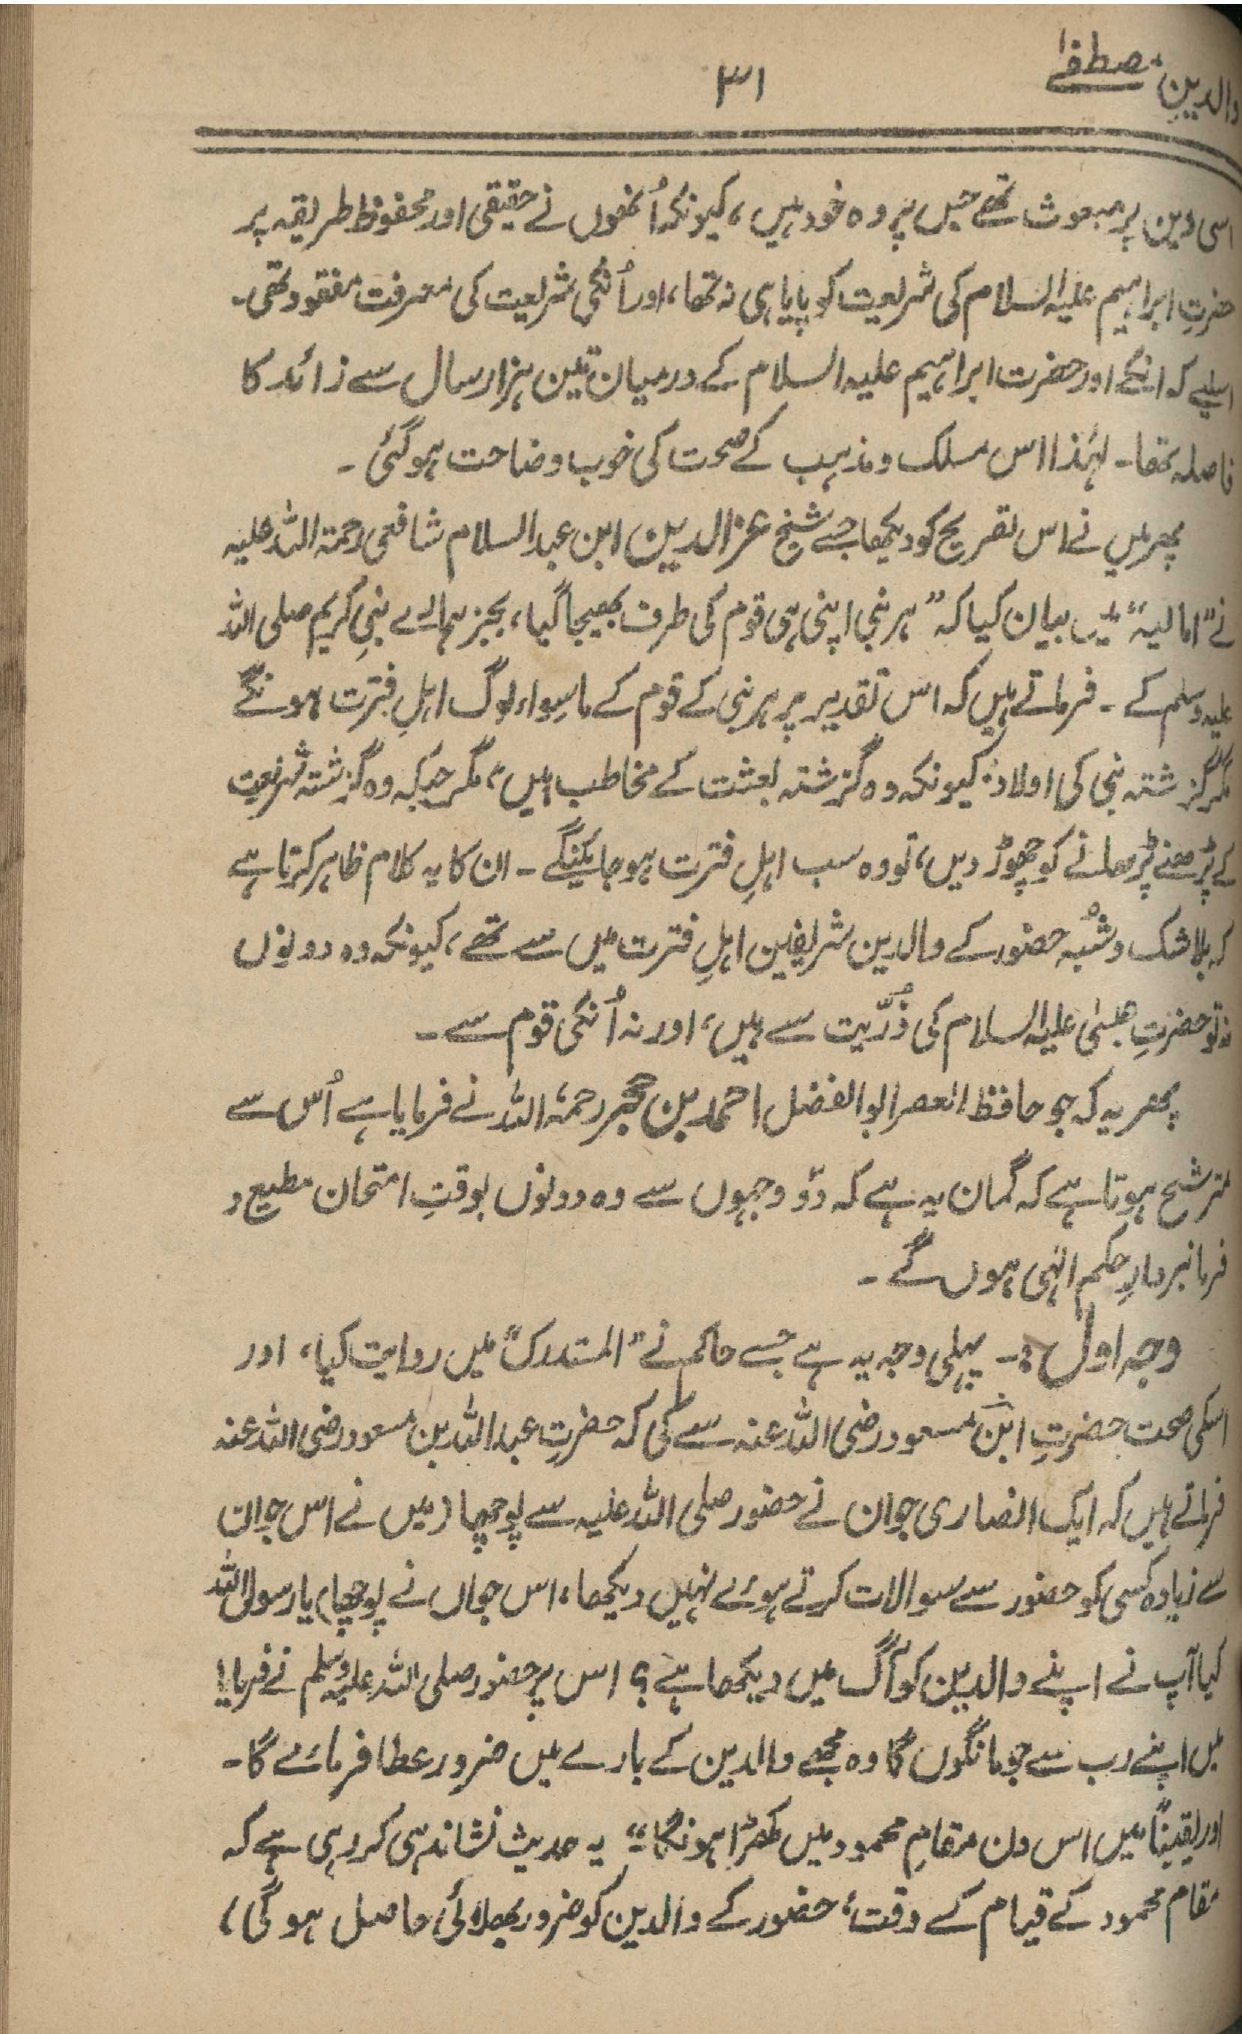 والدینِ مصطفےٰ
۳۱
اسی دین پر مبعوث تھے جس پر وہ خود ہیں، کیونکہ اُنھوں نے حقیقی اور محفوظ طریقہ پر
حضرتِ ابراہیم علیہ السلام کی شریعت کو پایا ہی نہ تھا، اور اُنکی شریعت کی معرفت مفقود تھی۔
اسلیے کہ انکے اور حضرت ابراہیم علیہ السلام کے درمیان تین ہزار سال سے زائد کا
فاصلہ تھا۔ لہٰذا اس مسلک ومذہب کے صحت کی خوب وضاحت ہو گئی۔
پھر میں نے اس تصریح کو دیکھا جسے شیخ عزالدین ابن عبدالسلام شافعی رحمۃ اللہ علیہ
نے "امالیہ" میں بیان کیا کہ "ہر نبی اپنی ہی قوم کی طرف بھیجا گیا، بجز ہمارے نبیِ کریم صلی اللہ
علیہ وسلم کے۔ فرماتے ہیں کہ اس تقدیر پر ہر نبی کے قوم کے ماسِواء لوگ اہلِ فترت ہونگے
مگر گزشتہ نبی کی اولاد، کیونکہ وہ گزشتہ بعثت کے مخاطب ہیں، مگر جبکہ وہ گزشتہ شریعت
کے پڑھنے پڑھانے کو چھوڑ دیں، تو وہ سب اہلِ فترت ہو جائینگے۔ ان کا یہ کلام ظاہر کرتا ہے
کہ بلا شک وشبُہ حضور کے والدین شریفین اہلِ فترت میں سے تھے، کیونکہ وہ دونوں
نہ تو حضرتِ عیسٰی علیہ السلام کی ذُرّیت سے ہیں، اور نہ اُنکی قوم سے۔
پھر یہ کہ جو حافظ العصر ابوالفضل احمد بن حجر رحمۃ اللہ نے فرمایا ہے اُس سے
مترشح ہوتا ہے کہ گمان یہ ہے کہ دوّ وجہوں سے وہ دونوں بوقتِ امتحان مطیع و
فرمانبردارِ حکم الٰہی ہوں گے۔
وجہ اول :۔ پہلی وجہ یہ ہے جسے حاکم نے "المستدرک" میں روایت کیا، اور
اسکی صحت حضرتِ ابن مسعود رضی اللہ عنہ سے کی کہ حضرتِ عبداللہ بن مسعود رضی اللہ عنہ
فرماتے ہیں کہ ایک انصاری جوان نے حضور صلی اللہ علیہ سے پوچھا (میں نے اس جوان
سے زیادہ کسی کو حضور سے سوالات کرتے ہوئے نہیں دیکھا، اس جواں نے پوچھا) یا رسول اللہ
کیا آپ نے اپنے والدین کو آگ میں دیکھا ہے؟ اس پر حضور صلی اللہ علیہ وسلم نے فرمایا!
میں اپنے رب سے جو مانگوں گا وہ مجھے والدین کے بارے میں ضرور عطا فرمائے گا۔
اور یقیناً میں اس دن مقامِ محمود میں کھڑا ہونگا" یہ حدیث نشاندہی کر رہی ہے کہ
مقام محمود کے قیام کے وقت، حضور کے والدین کو ضرور بھلائی حاصل ہو گی،